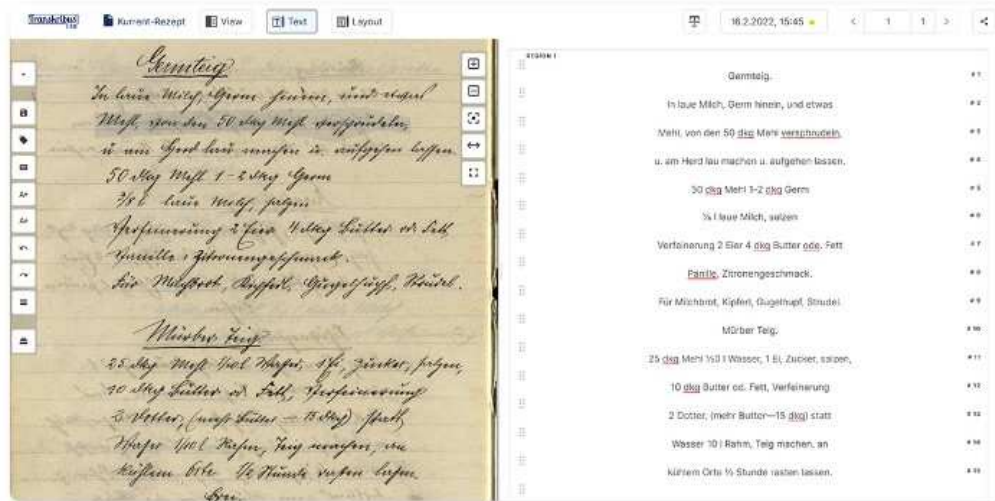 Transkribus
LITE
Kurrent-Rezept
View
Text
Layout
16.2.2022, 15:45
1
1
Germteig
In laue Milch, Germ hinein, und etwas
Mehl, von den 50 dkg Mehl versprudeln,
u am Herd lau machen u. aufgehen lassen.
50 dkg Mehl 1-2 dkg Germ
3/8 l laue Milch, salzen
Verfeinerung 2 Eier 4 dkg Butter od. Fett
Vanille, Zitronengeschmack.
Für Milchbrot, Kipferl, Gugelhupf, Strudel.
Mürber Teig.
25 dkg Mehl 1/10 l Wasser, 1 Ei, Zucker, salzen,
10 dkg Butter od Fett, Verfeinerung
2 Dotter, (mehr Butter — 15 dkg) statt
Wasser 1/10 l Rahm, Teig machen, an
kühlem Orte 1/2 Stunde rasten lassen.
REGION 1
Germteig.
# 1
In laue Milch, Germ hinein, und etwas
# 2
Mehl, von den 50 dkg Mehl versprudeln,
# 3
u. am Herd lau machen u. aufgehen lassen.
# 4
50 dkg Mehl 1-2 dkg Germ
# 5
⅜ l laue Milch, salzen
# 6
Verfeinerung 2 Eier 4 dkg Butter ode. Fett
# 7
Panille, Zitronengeschmack.
# 8
Für Milchbrot, Kipferl, Gugelhupf, Strudel.
# 9
Mürber Teig.
# 10
25 dkg Mehl ½0 l Wasser, 1 Ei, Zucker, salzen,
# 11
10 dkg Butter od. Fett, Verfeinerung
# 12
2 Dotter, (mehr Butter—15 dkg) statt
# 13
Wasser 10 l Rahm, Teig machen, an
# 14
kühlem Orte ½ Stunde rasten lassen.
# 15